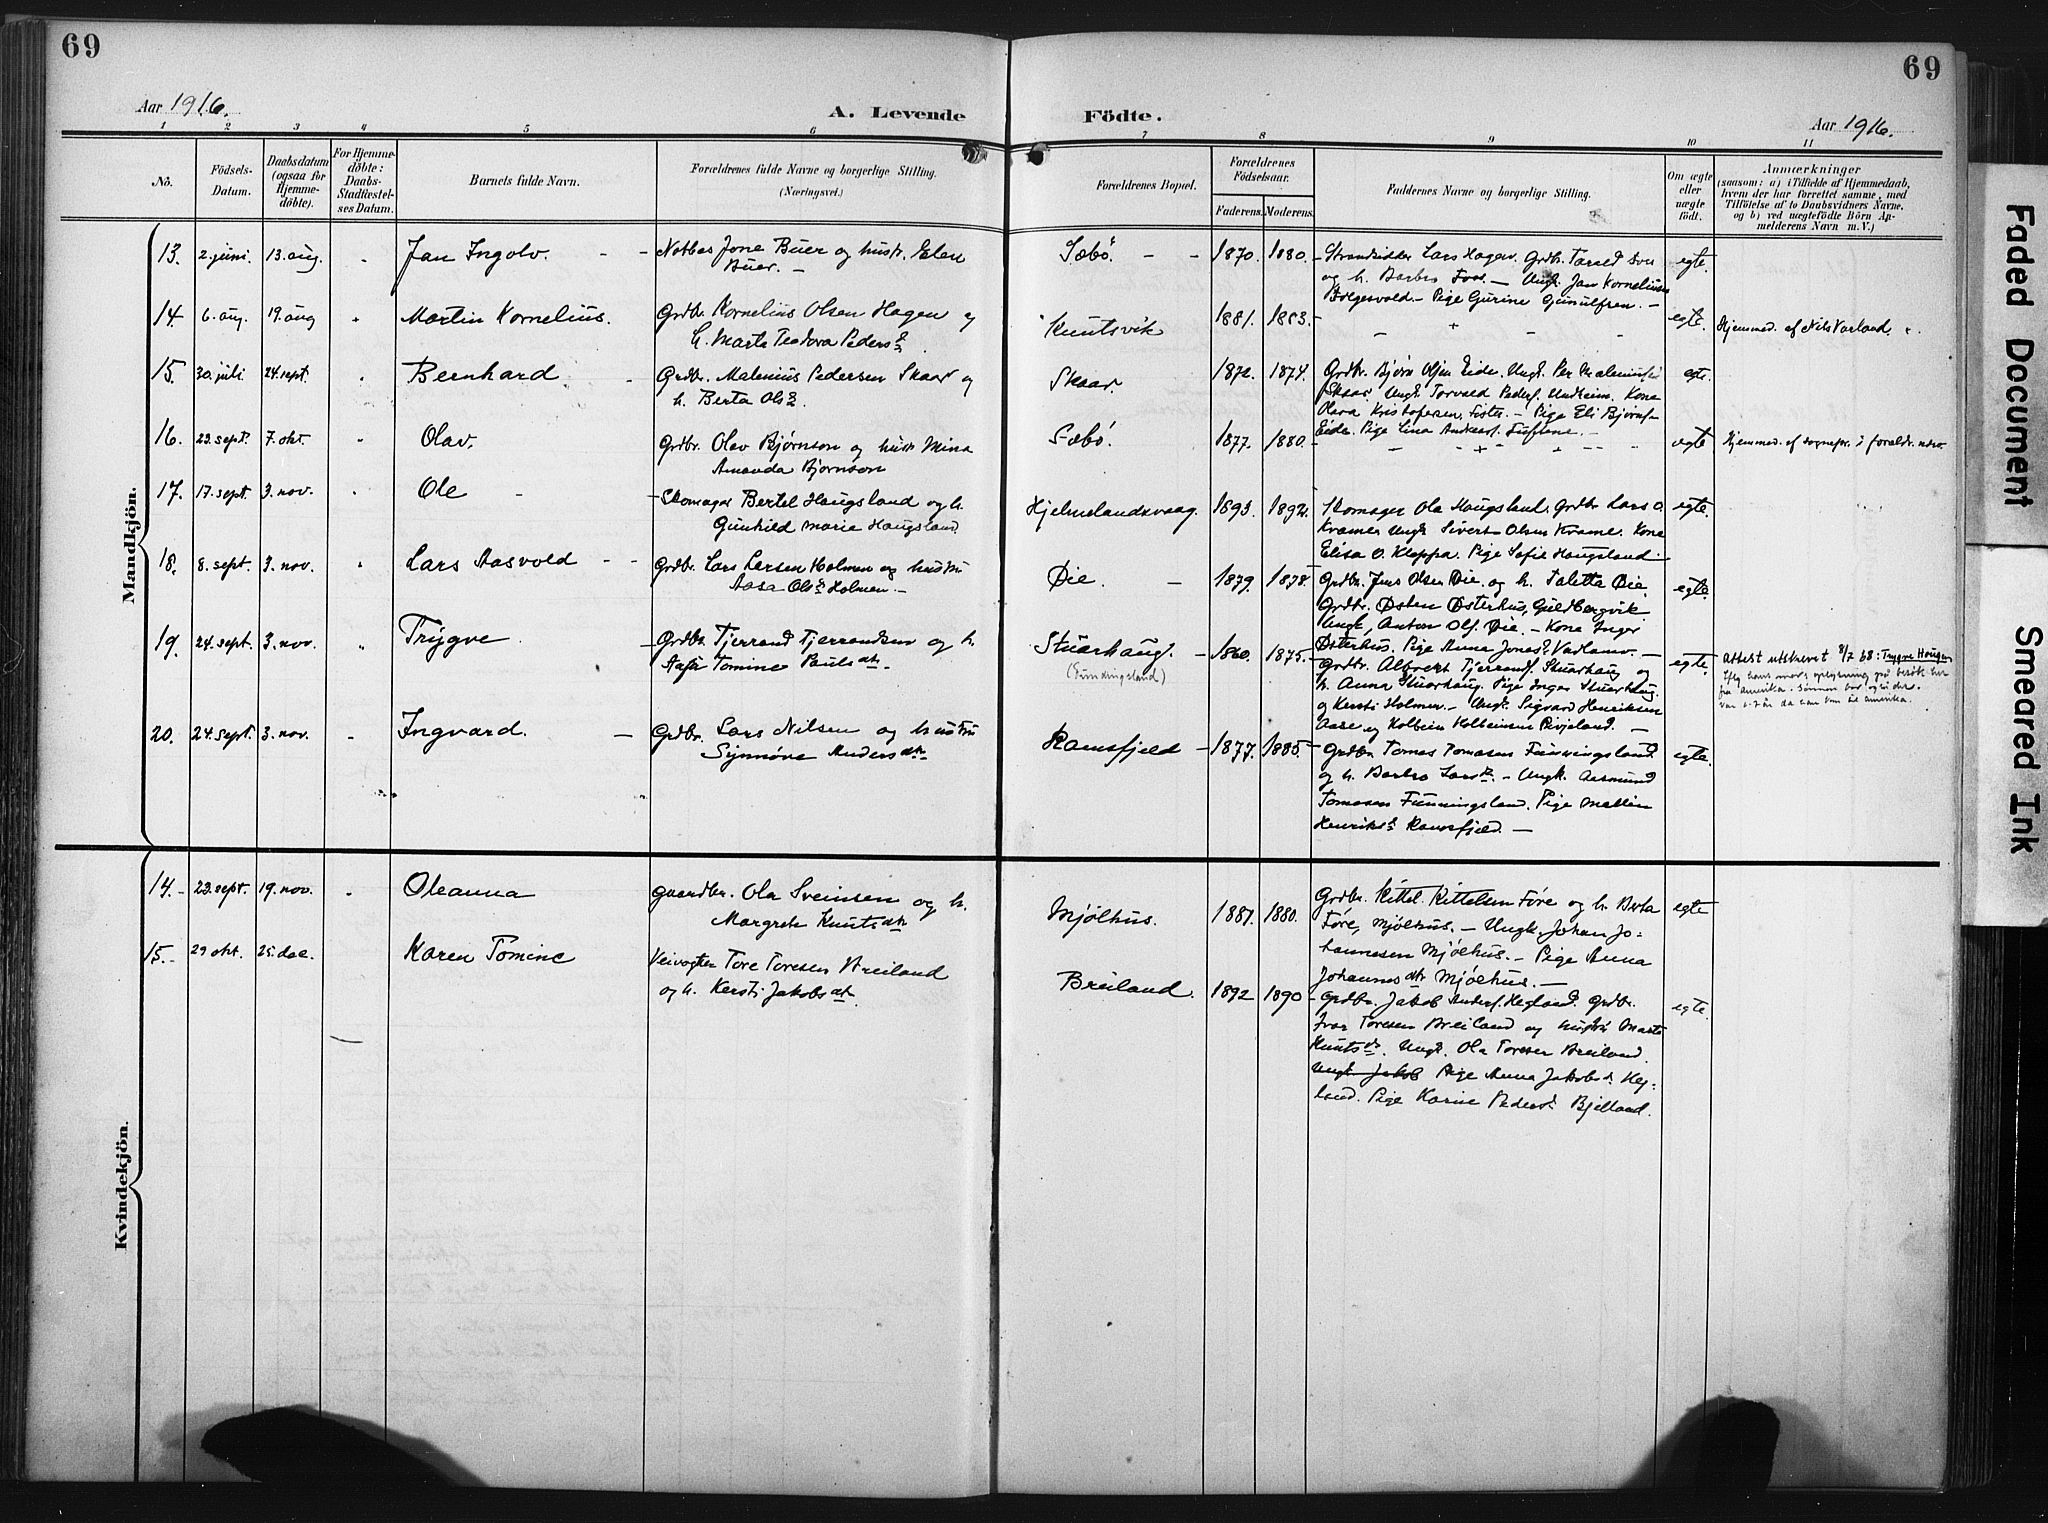 69
69
Aar 1916.
A. Levende
Födte.
Aar 1916.
1 2 3 4 5 6 7 8 9 10 11
No.
Födsels-
Datum.
Daabsdatum
(ogsaa for
Hjemme-
döbte).
For Hjemme-
döbte:
Daabs-
Stadfæstel-
ses Datum.
Barnets fulde Navn.
Forældrenes fulde Navne og borgerlige Stilling.
(Næringsvei.)
Forældrenes Bopæl.
Forældrenes
Födselsaar.
Faderens. Moderens.
Faddernes Navne og borgerlige Stilling.
Om ægte
eller
uægte
födt.
Anmærkninger
(saasom: a) i Tilfælde af Hjemmedaab,
hvem der har forrettet samme, med
Tilföielse af to Daabsvidners Navne,
og b) ved uægtefödte Börn An-
melderens Navn m. V.)
Mandkjön.
13. 2. juni. 13. aug. Jan Ingolv. - -
Jone Buer og hustr. Elen
Buer. -
Sæbö. - - 1870. 1880.
Lars Hagen. Grdb.
og h. Barbro Foss. - Ungk. Jan Kornelius
Pige Gurine Gunulfsen. -
egte.
14. 6. aug. 19. aug Martin Kornelius.
Grdbr. Kornelius Olsen Hagen og
h. Marta Teodora Peders
Knutsvik 1881. 1883.
egte.
Hjemmed. af Nils
15. 30. juli. 24. sept. Bernhard -
Grdbr. Malenius Pedersen Skaar og
h. Berta Ols
Skaar. 1872. 1874.
Grdbr. Bjørn Olsen Eide. Ungk. Per
Skaar. Ungk. Torvald Peders. Undheim. Kona
Olava Kristofersen, Fister. - Pige Eli Bjørnsd.
Eide. Pige Lina Tuftene. -
egte.
16. 23. sept. 7. okt. Olav.
Grdbr. Olav Bjørnson og hustr. Mina
Amanda Bjørnson
Sæbö. 1877. 1880.
egte
Hjemmed. af sognepr. i foreldr. nærv.
17. 17. sept. 3. nov. Ole -
- Skomager Bertel Haugsland og h.
Gunhild Marie Haugsland.
Hjelmelandsvaag. 1893. 1892.
Skomager Ola Haugsland. Grdbr. Lars O.
Kramer. Ungk. Sivert Olsen Krame. Kona
Elisa O. Kleppa. Pige Sofie Haugsland.
egte.
18. 8. sept. 3. nov. Lars Aasvold - -
Grdbr. Lars Larsen Holmen og hustru
Aasa Ols Holmen. -
Øie. - 1879. 1878.
Grdbr. Jens Olsen Øie. og h. Taletta Øie.
Grdbr. Østen Østerhus, Guldbergvik
Ungk. Anton Ols. Øie. - Kona Inger
Østerhus. Pige Anna Jonas
egte.
19. 24. sept. 3. nov. Trygve.
Grdbr. Tjerrand Tjerrandsen og h.
Tomine Pauls dt.
Stuarhaug. -
(Funningsland)
1860. 1875.
Grdbr. Albrekt Tjerrands. Stuarhaug og
h. Anna Stuarhaug. Pige Inger Stuarhaug.
og Kersti Holmen. - Ungk. Sigvard Henriksen
Aase og Kolbein Kolbeinsen -
egte.
Attest utskrevet 8/7 68: Trygve Haugen
Eftg hans mors oplysning på besøk her
fra Amerika. Sønnen bor også der.
Var 6-7 år da han kom til Amerika.
20. 24. sept. 3. nov. Ingvard. -
Grdbr. Lars Nilsen og hustru
Synnøve Anders dtr.
Ramsfjeld - 1877. 1885.
Grdbr. Tomas Tomasen Funningsland.
og h. Barbro Lars - Ungk. Aasmund
Tomasen Funningsland. Pige Mallin
Henriks Ramsfjeld. -
egte.
Kvindekjön.
14. - 23. sept. 19. nov. Oleanna
Gaardbr. Ola Sveinsen og h.
Margrete Knuts dtr.
Mjølhus. 1887. 1880.
Grdbr. Kittel Kittelsen Føre og h. Berta
Føre, Mjølhus. - Ungk. Johan Jo-
hannesen Mjølhus. - Pige Anna
Johannes dtr. Mjølhus. -
egte
15. - 29 okt. 25. dec. Karen Tomine
Veivogter Tore Toresen Breiland
og h. Kersti Jakobs dt.
Breiland. 1892 1890
Grdbr. Jakob Anders. Hegland. Grdbr.
Ivar Toresen Breiland og hustru Marta
Knuts dt. Ungk. Ola Toresen Breiland.
Ungk. Jakob Pige Anna Jakobs d. Heg-
land. Pige Karine Peders d. Bjelland.
egte.
Faded Document
Smeared Ink